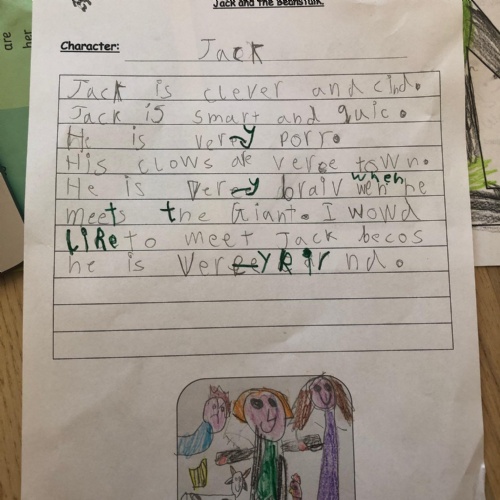 are
her
Jack and the Beanstalk.
Character: Jack
Jack is clever and cind.
Jack is smart and quic.
He is very porr.
His clows are veree town.
He is very braiv when he
meets the Giant. I wowd
LiRe to meet Jack becos
he is Very kind.